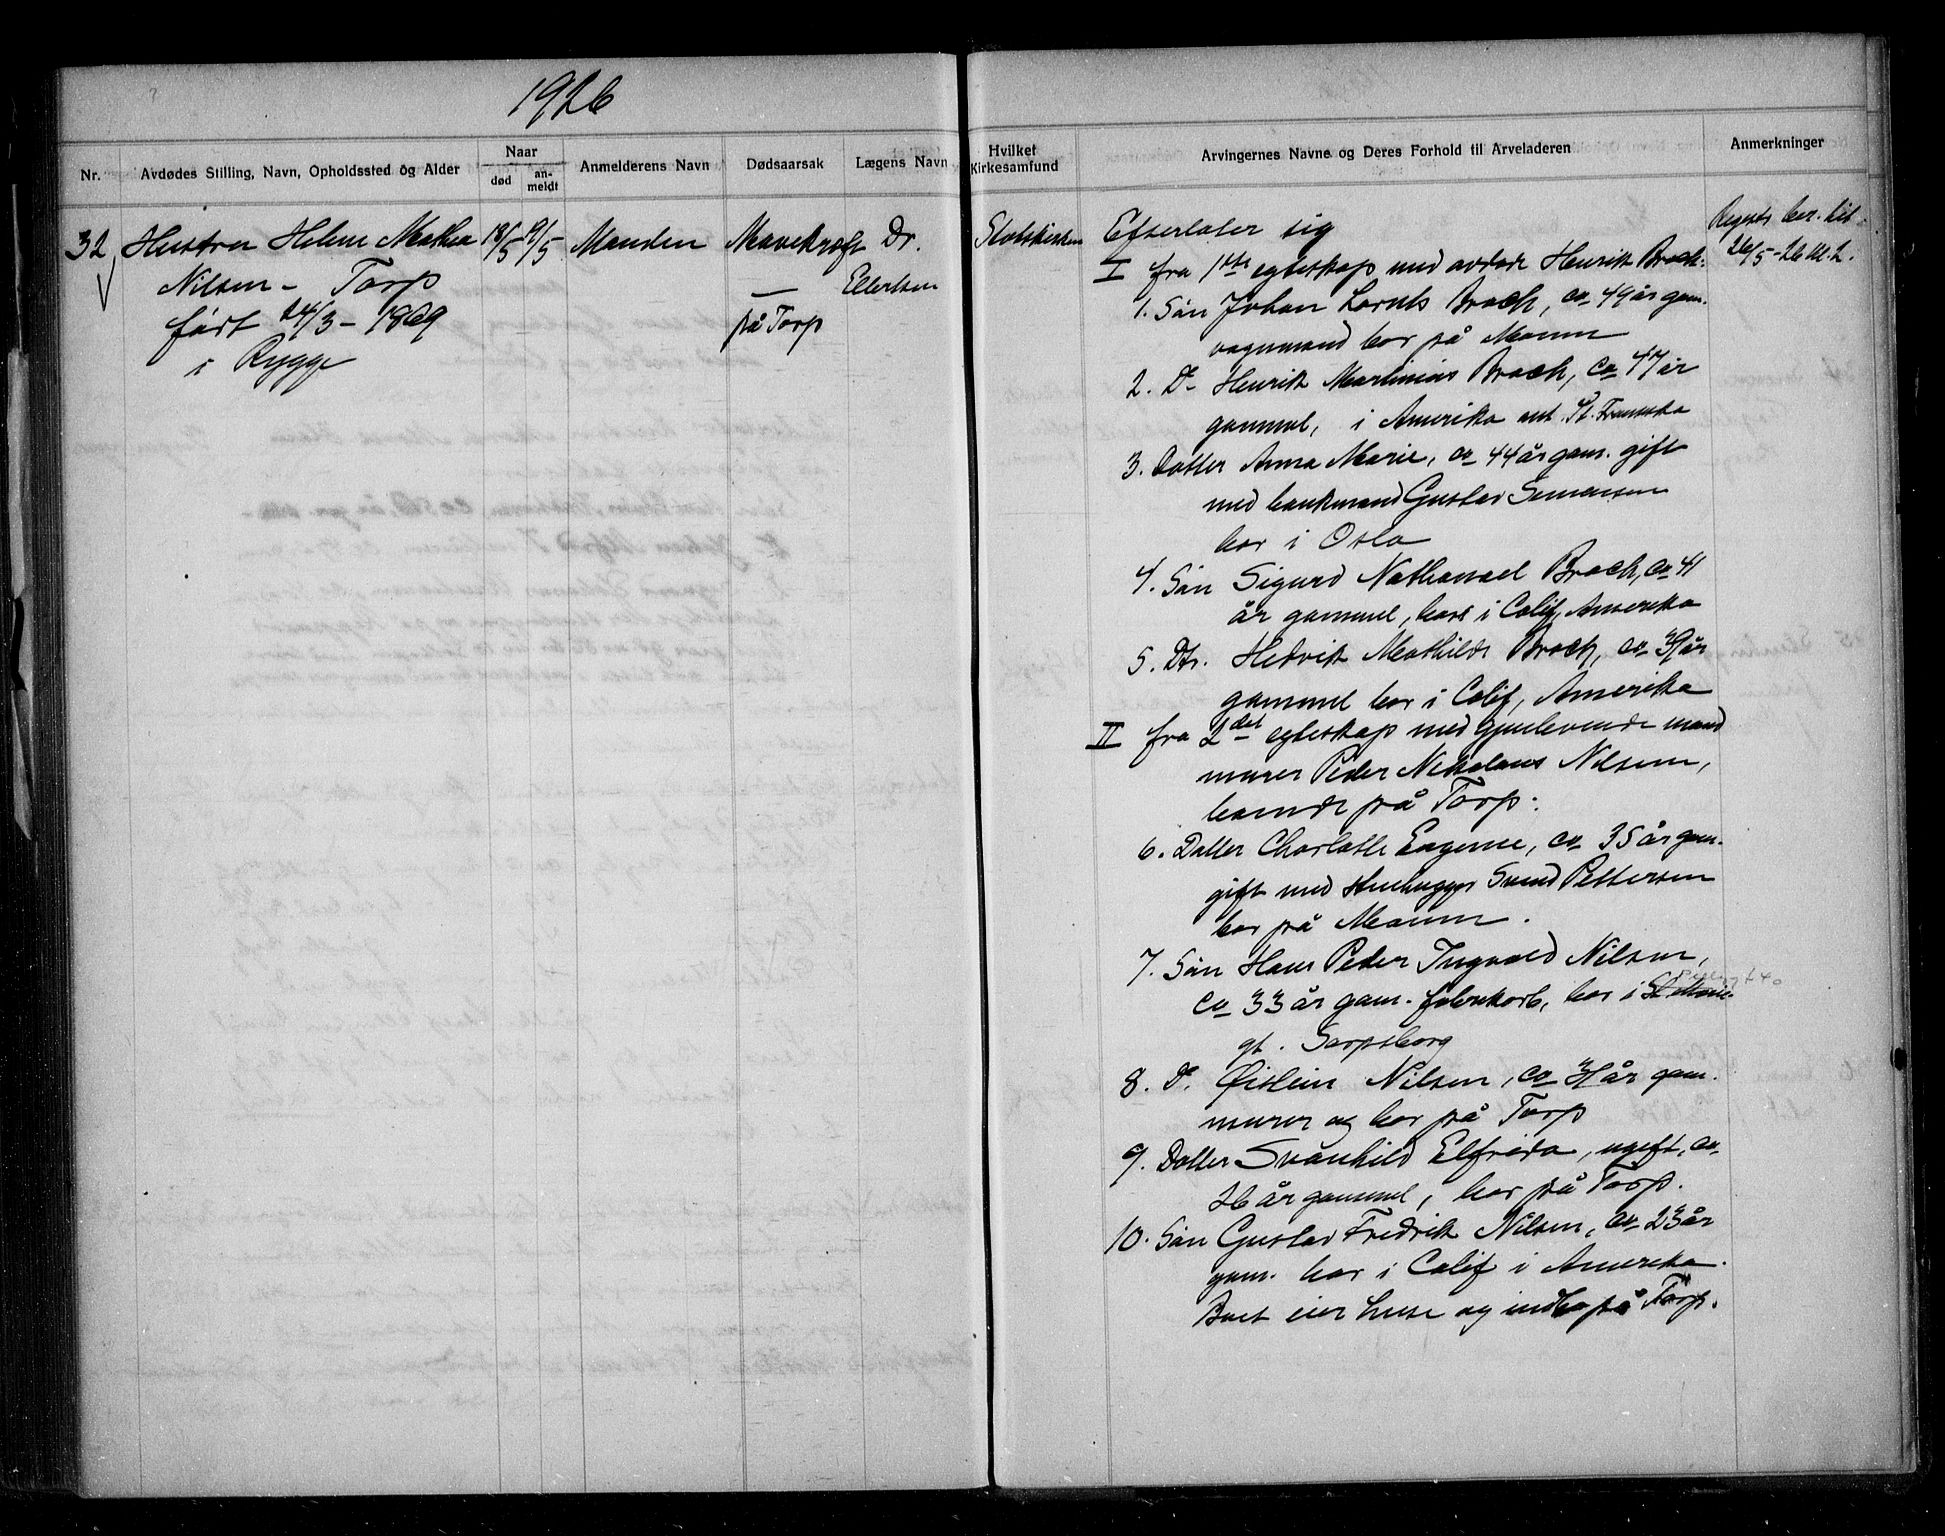 1926
Nr.
Avdødes Stilling, Navn, Opholdssted og Alder
Naar
død
an-
meldt
Anmelderens Navn
Dødsaarsak
Lægens Navn
Hvilket
Kirkesamfund
Arvingernes Navne og Deres Forhold til Arveladeren
Anmerkninger
32 Hustru Helene Mathea
Nilsen - Torp
født 24/3 - 1869
i Rygge
18/5 19/5
Manden
Mavekræft
på Torp
Dr.
Ellertsen
Statskirken
Efterlater sig
I fra 1ste egteskap med avdøde Henrik Broch:
1. Søn Johan Lornts Broch, ca 49 år gam.
vognmand bor på Moum
2. Do Henrik Martinius Broch, ca 47 år
gammel, i Amerika ant. St. Fransisko
3. Datter Anna Marie, ca 44 år gam. gift
med bankmand Gustav Simensen
bor i Oslo
4. Søn Sigurd Nathanael Broch, ca 41
år gammel, bor i Calif, Amerika
5. Dtr. Hedvik Mathilde Broch, ca 39 år
gammel bor i Calif, Amerika
II fra 2det egteskap med gjenlevende mand
murer Peder Nikolaus Nilsen,
boende på Torp:
6. Datter Charlotte Eugenie, ca 35 år gam.
gift med stenhugger Svend Pettersen
bor på Moum.
7. Søn Hans Peder Ingvald Nilsen,
ca 33 år gam. fabrikarb, bor i St. Marie
gt. Sarpsborg
8. Do. Øistein Nilsen, ca 31 år gam.
murer og bor på Torp
9. Datter Svanhild Elfrida, ugift, ca
26 år gammel, bor på Torp.
10. Søn Gustav Fredrik Nilsen, ca 23 år
gam. bor i Calif i Amerika.
Boet eier huse og indbo på Torp.
Regestr. ber. tit.
26/5-26 kl. 2.